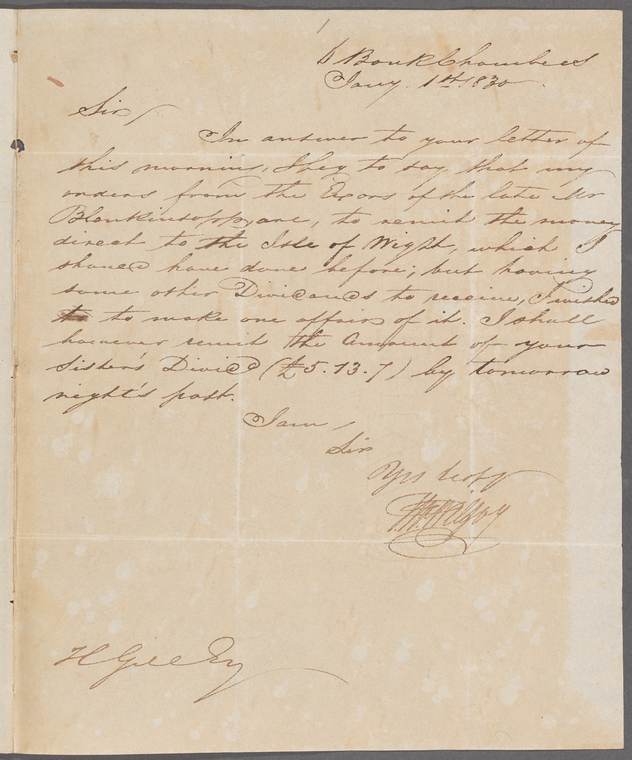 6 Bank Chambers
Jany. 1st 1830
Sir
In answer to your letter of
this morning, I beg to say that my
orders from the Exors of the late Mr
Blenkinsopp are, to remit the money
direct to the Isle of Wight, which I
should have done before; but having
some other Dividends to receive, I wished
to make one affair of it. I shall
however remit the Amount of your
Sister's Divid (£5.13.7) by tomorrow
night's post.
I am
Sir
Yrs
H Gill Esq